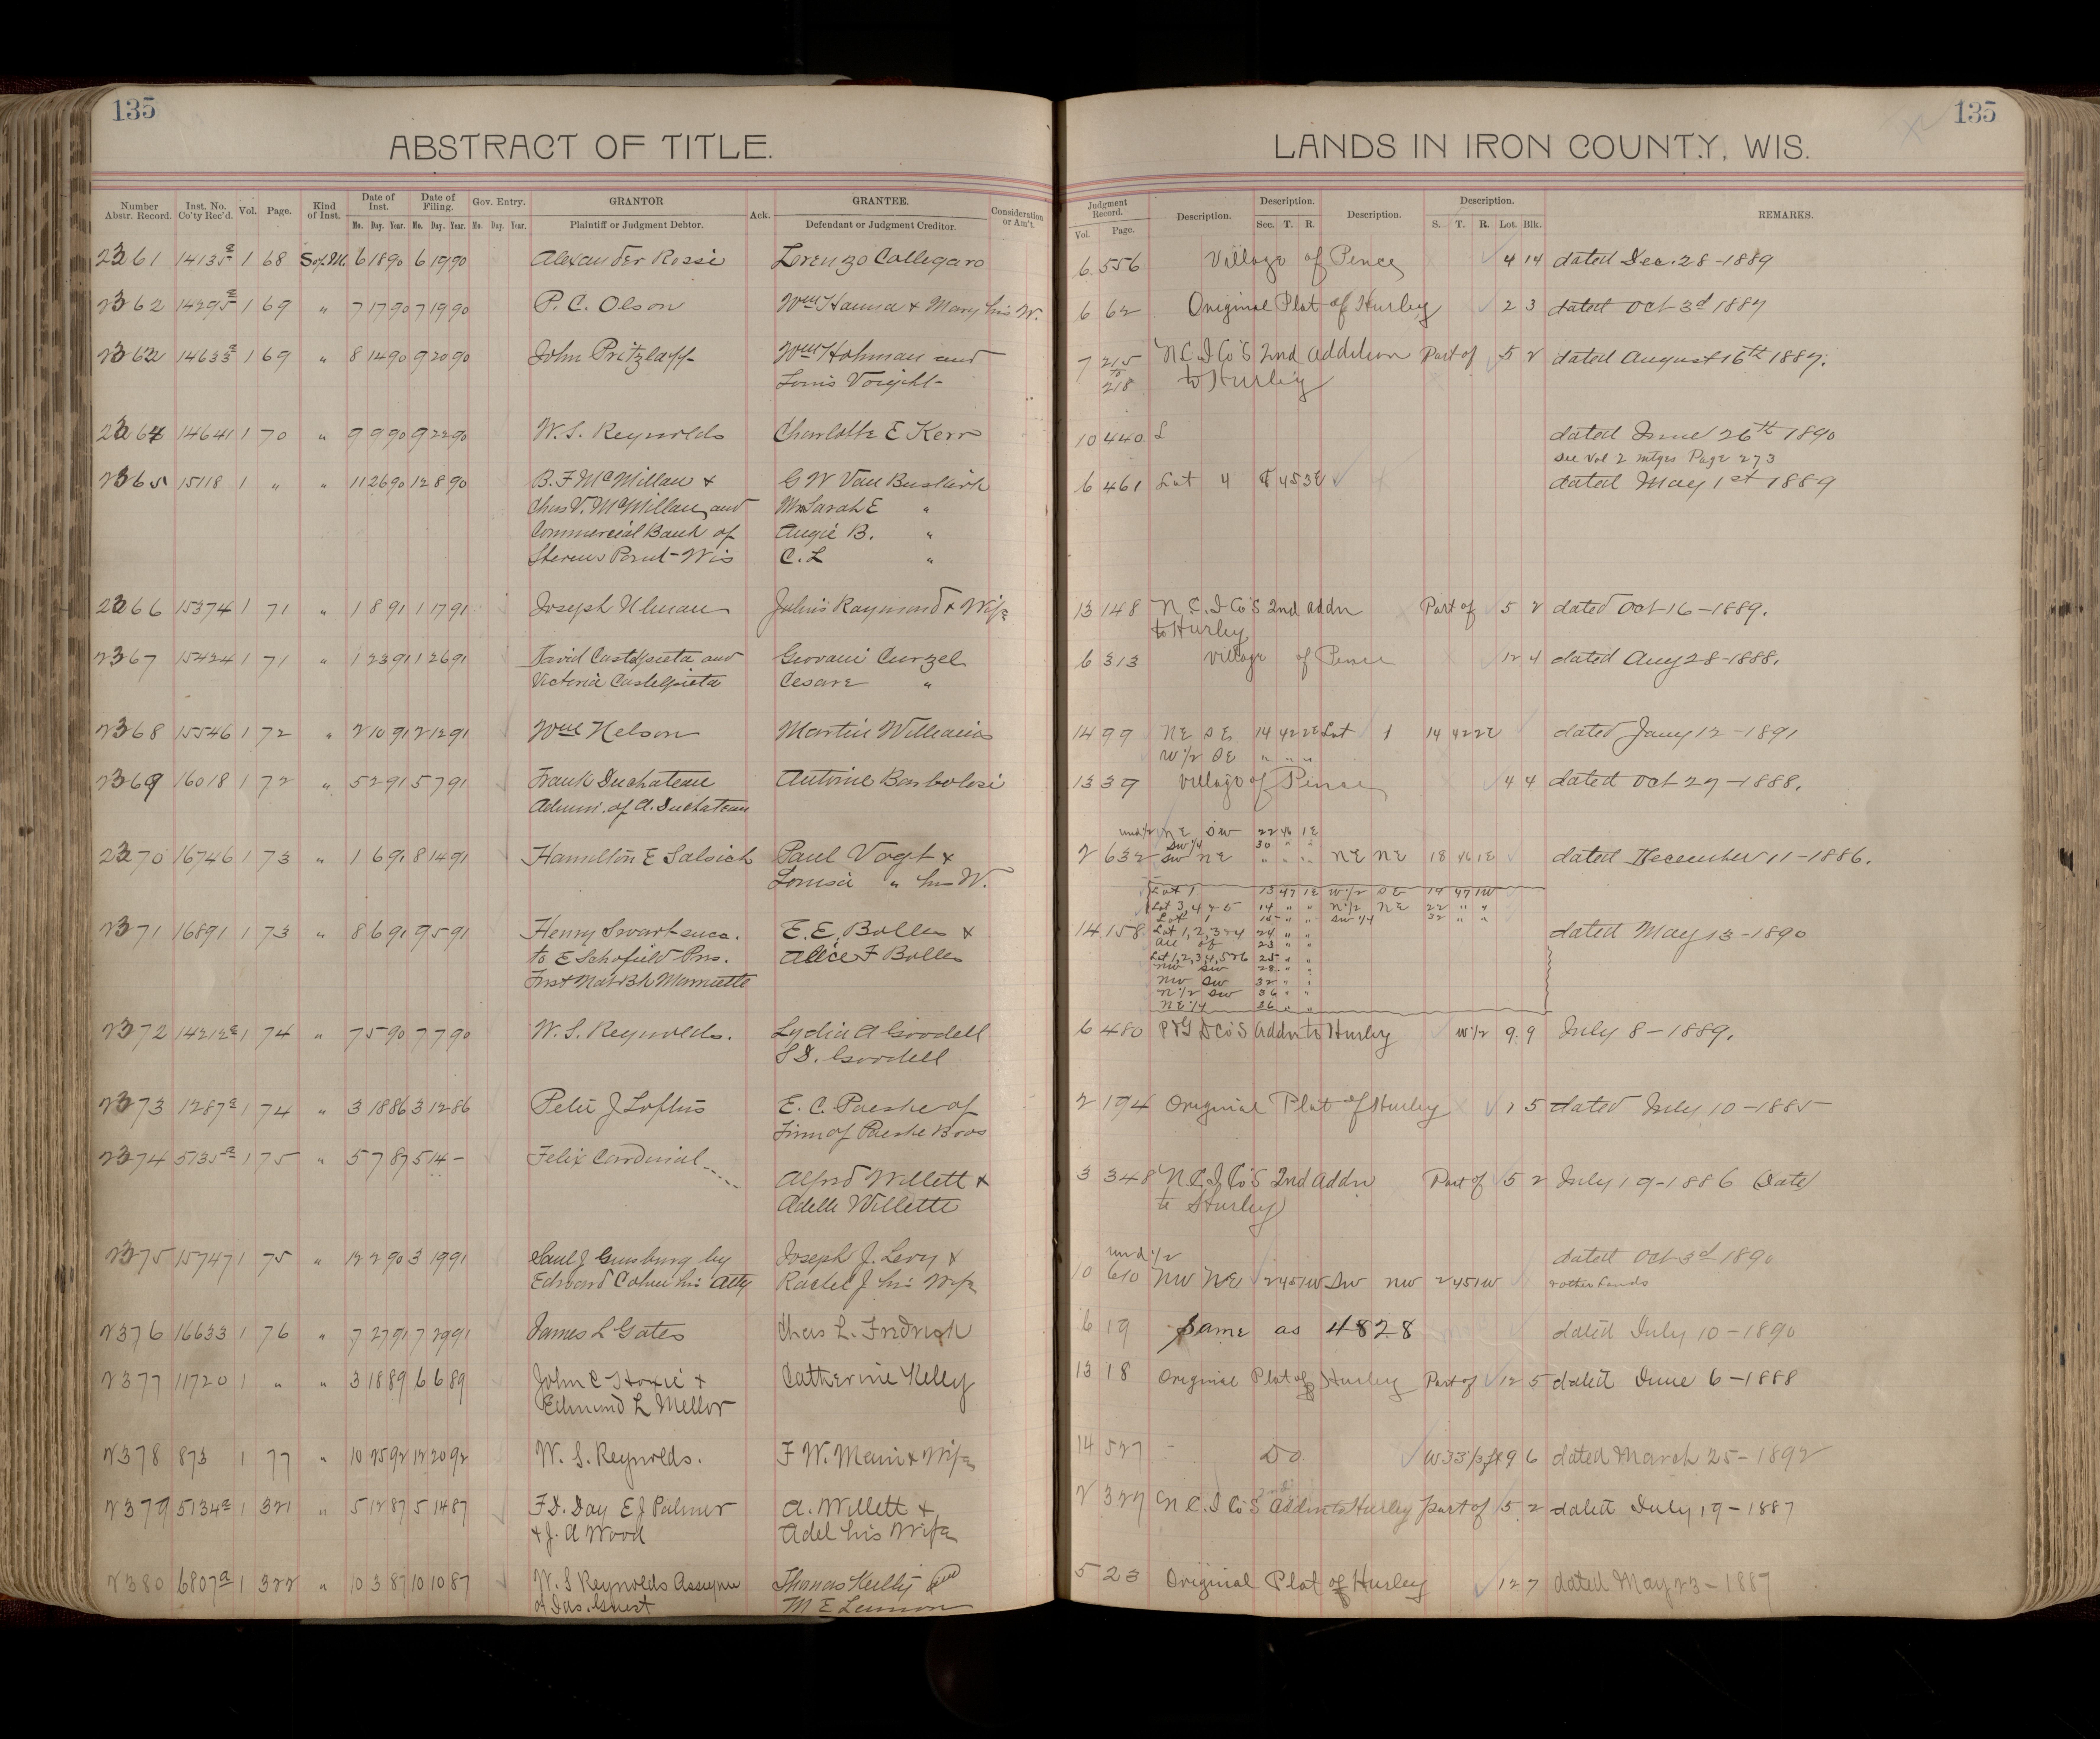 135
ABSTRACT OF TITLE.
Number Abstr. Record. Inst. No. Co'ty Rec'd. Vol. Page. Kind of Inst. Date of Inst. Date of Filing. Gov. Entry. GRANTOR Ack. GRANTEE. Consideration or Am't.
Mo. Day. Year. Mo. Day. Year. Mo. Day. Year. Plaintiff or Judgment Debtor. Defendant or Judgment Creditor.
2361 14135a 1 68 S of M. 6 18 90 6 19 90 Alexander Rossi Lorenzo Collegaro
2362 14295a 1 69 " 7 17 90 7 19 90 P. C. Olson Wm Hanna & Mary his W.
14633a 1 69 " 8 14 90 9 20 90 John Pritzlaff Wm Hohman and
Louis Voight
14641 1 70 " 9 9 90 9 22 90 W. S. Reynolds Charlotte E Kerr
2365 15118 1 " " 11 26 90 12 8 90 B. F McMillan & G W Van Buskirk
Chas V. McMillan and Mrs Sarah E "
Commercial Bank of Angie B. "
Stevens Point Wis C. L "
2366 15374 1 71 " 1 8 91 1 17 91 Joseph Ulman Julius Raymond & Wife
2367 15424 1 71 " 1 23 91 1 26 91 David Castelpieta and Geovani Curzel
Victoria Castelpieta Cesare "
2368 15546 1 72 " 2 10 91 2 12 91 Wm Nelson Martin Williams
2369 16018 1 72 " 5 2 91 5 7 91 Frank Duchateau Antoine Barbolesi
Admin. of A. Duchateau
2370 16746 1 73 " 1 6 91 8 14 91 Hamilton E Salsich Paul Vogt &
Louisa " his W.
2371 16891 1 73 " 8 6 91 9 5 91 Henry Swart succ. E. E. Bolles &
to E Schofield Prs. Alice F Bolles
First Nat Bk Marinette
2372 14212a 1 74 " 7 5 90 7 7 90 W. S. Reynolds. Lydia A Goodell
S D. Goodell
2373 1287a 1 74 " 3 18 86 3 12 86 Peter J Loftus E. C. Paeske of
Firm of Paeske Bros
2374 5135a 1 75 " 5 7 87 5 14 - Felix Cardinial
Alfred Willett &
Adelle Willette
2375 15747 1 75 " 12 2 90 3 19 91 Saul J Ginsburg by Joseph J. Levy &
Edward Cohen his Atty Rachel J his Wife
2376 16633 1 76 " 7 27 91 7 29 91 James L Gates Chas L. Fredrich
2377 11720 1 " " 3 18 89 6 6 89 John C Hoxie & Catherine Kelly
Edmund L Mellor
2378 873 1 77 " 10 25 92 12 20 92 W. S. Reynolds. F W. Main & Wife
2379 5134a 1 321 " 5 12 87 5 14 87 F. D. Day E J Palmer A. Willett &
& J. A Wood Adel his Wife
2380 6807a 1 322 " 10 3 87 10 10 87 W. S Reynolds Assignee Thomas Kelly and
of Jas. Guest M E Lennon
135
LANDS IN IRON COUNTY, WIS.
Judgment Record. Description. Description. Description. Description. REMARKS.
Vol. Page. Sec. T. R. S. T. R. Lot. Blk.
6 556 Village of Pence 4 14 dated Dec. 28-1889
6 62 Original Plat of Hurley 2 3 dated Oct 3d 1887
7 215 N. C. I Co's 2nd Addition Part of 5 2 dated August 16th 1887.
to
218 to Hurley
10 440 L dated June 26th 1890
See Vol 2 mtgs Page 273
6 461 Lot 4 8 45 3E dated May 1st 1889
13 148 N. C. I Co's 2nd addn Part of 5 2 dated Oct-16-1889.
to Hurley
6 313 Village of Pence 12 4 dated Aug 28-1888.
14 99 NE SE 14 42 2E Lot 1 14 42 2E dated Jany 12-1891
W 1/2 SE " " "
13 39 Village of Pence 4 4 dated Oct 27-1888.
und 1/2 NE SW 22 46 1E
SW 1/4 30 " "
2 632 SW NE " " " NE NE 18 46 1E dated December 11-1886.
Lot 1 13 47 1E W 1/2 SE 14 47 1W
Lot 3, 4 & 5 14 " " N 1/2 NE 22 " "
Lot 1 15 " " SW 1/4 32 " "
14 158 Lot 1, 2, 3 & 4 24 " " dated May 13-1890
All of 23 " "
Lot 1, 2, 3 4, 5 & 6 25 " "
NW SW 28 " "
NW SW 32 " "
N 1/2 SW 36 " "
NE 1/4 36 " "
6 480 P & G D Co's Addn to Hurley W 1/2 9. 9 July 8-1889.
2 194 Original Plat of Hurley 2 5 dated July 10-1885
3 348 N. C. I. Co's 2nd Addn Part of 5 2 July 19-1886 (Date)
to Hurley
und 1/2 dated Oct 3d 1890
10 610 NW NE 2 45 1W SW NW 2 45 1W & other Lands
6 19 Same as 4828 dated July 10-1890
13 18 Original Plat of Hurley Part of 12 5 dated June 6-1888
14 527 - Do W 33 1/3 ft 9 6 dated March 25-1892
2 327 N. C. I Co's 2nd Addn to Hurley Part of 5 2 dated July 19-1887
5 23 Original Plat of Hurley 12 7 dated May 23-1887